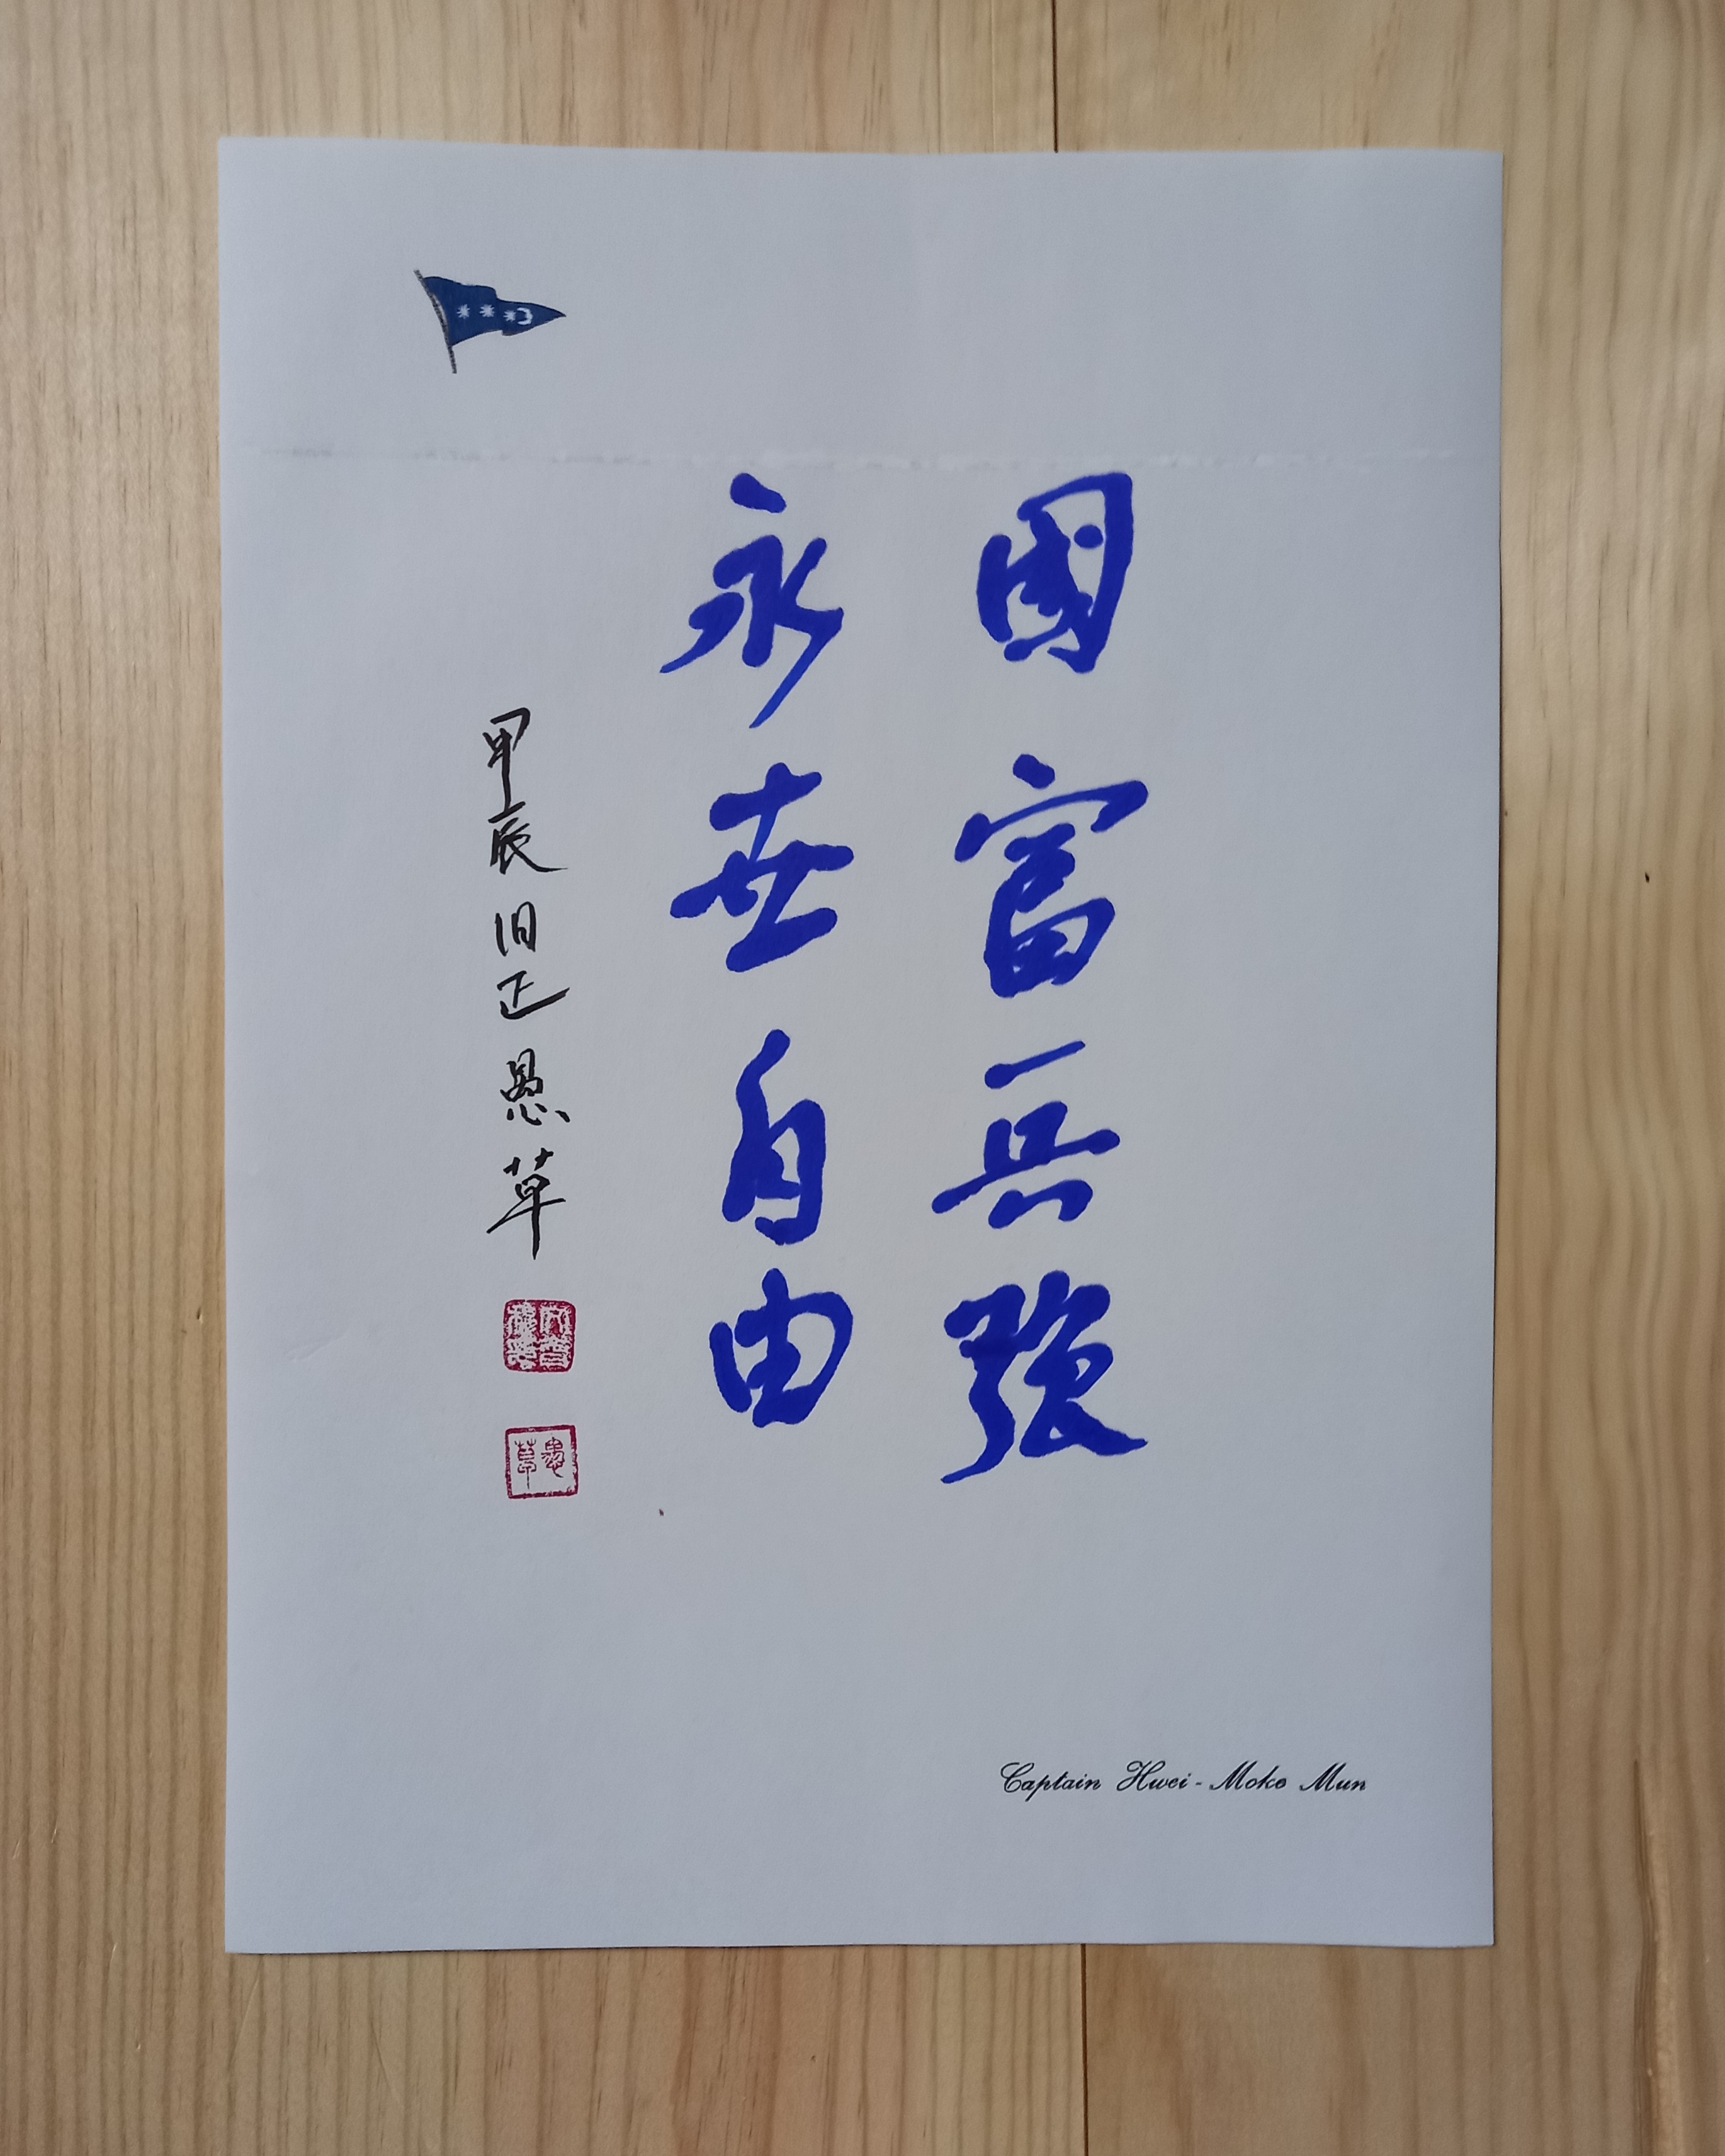 國富兵強
永世自由
甲辰旧正愚草
愚草
Captain Hwei-Moke Mun